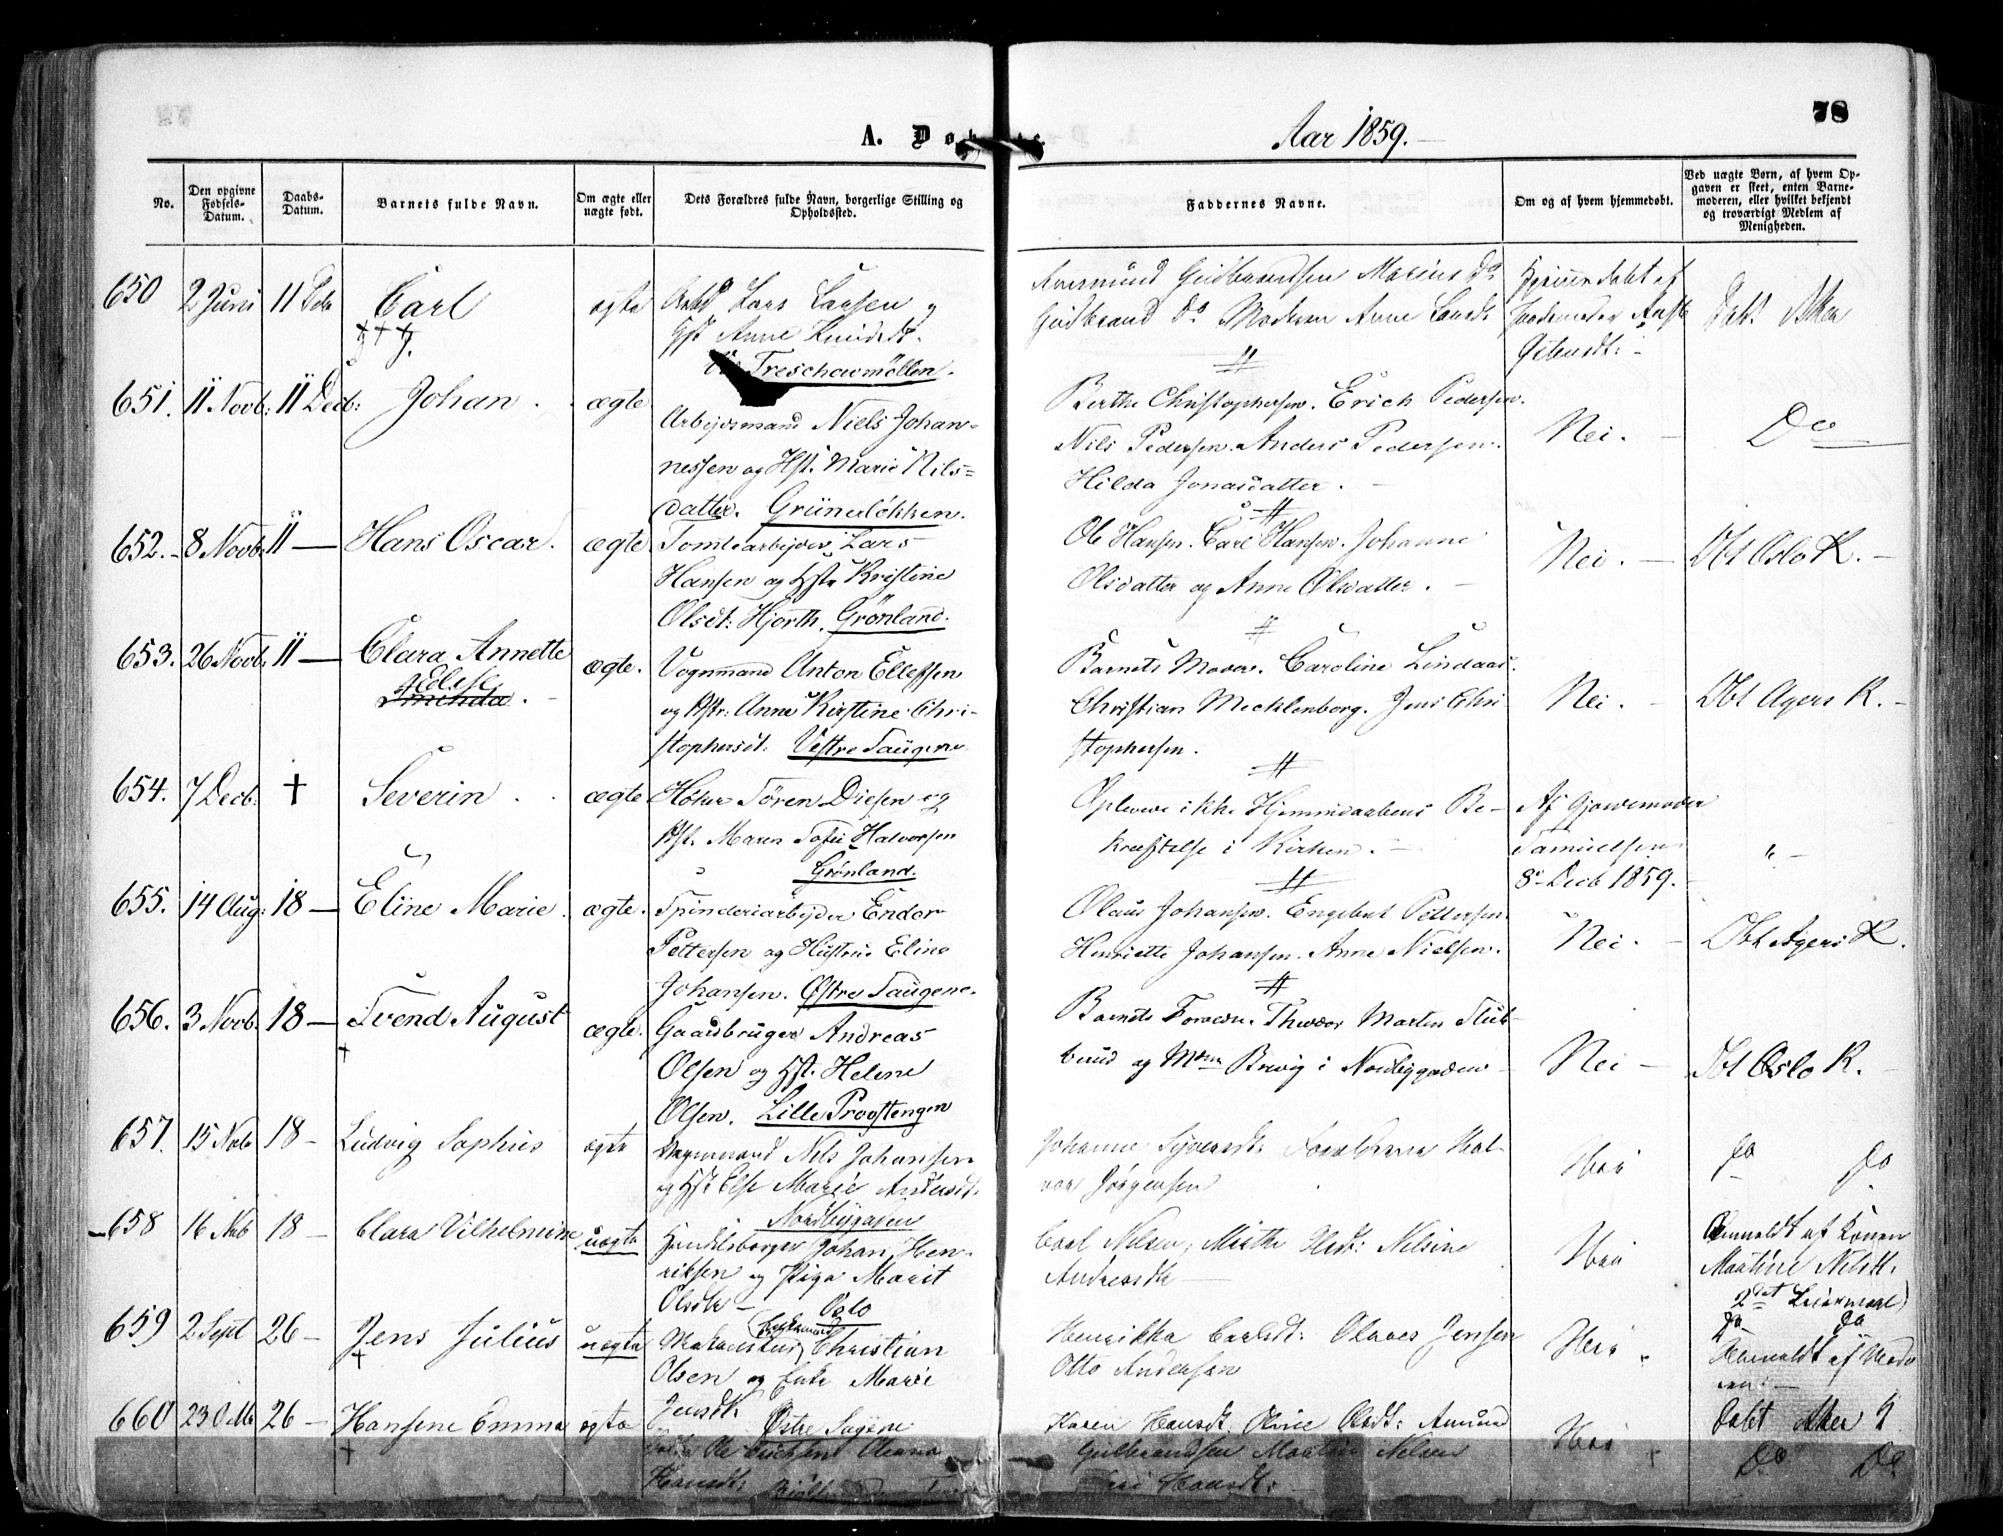 78
A. Dø
Aar 1859.
No.
Den opgivne Fødsels-Datum.
Daabs-Datum.
Barnets fulde Navn.
Om ægte eller uægte født.
Dets Forældres fulde Navn, borgerlige Stilling og Opholdssted.
Faddernes Navne.
Om og af hvem hjemmedøbt.
Ved uægte Børn, af hvem Opgaven er skeet, enten Barnemoderen, eller hvilket bekjendt og troværdigt Medlem af Menigheden.
650 2 Juni 11 Carl ægte Lars Larsen og
Anne
Treschowmöllen.
Gudbrandsen Marius Do
Gudbrand Do Moderen Anne
Døbt Aker
651. 11 Novb: 11 Decb: Johan. ægte
Arbejdsmand Niels Johan-
nessen og Hst. Marie Nils-
datter. Grünerløkken.
Berthe Christophersen. Erich Pedersen.
Nils Pedersen. Anders Pedersen.
Hilda Jonasdatter.
Nei.
Do
652. 8 Novb. 11 — Hans Oscar. ægte
Tomtearbejder Lars
Hansen og Hstr Kristine
Olsdt: Hjorth. Grønland.
Ole Hansen. Carl Hansen. Johanne
Olsdatter og Anne Olsdatter.
Nei.
Dbt Oslo K.
653. 26 Novb. 11 — Clara Annette
Edise
ægte.
Vognmand Anton Ellefsen
og Hstr: Anne Kirstine Chri-
stophersdt: Vestre Saugene
Barnets Moder. Caroline Lindaas.
Christian Mecklenborg. Jens Chri
stophersen.
Nei.
Dbt Agers K.
654. 7 Decb: † Severin. ægte
Høker Sören Diesen og
Hst. Maren Sofie Halvorsen
Grønland.
Oplevede ikke Hjemmedaabens Be-
kræftelse i Kirken.
Af Gjordemoder
Samuelsen
8de Decb 1859.
"
655. 14 Aug: 18 — Eline Marie. ægte.
Spinderiarbejder Endor
Pettersen og Hustru Eline
Johansen. Østre Saugene.
Olaus Johansen. Engebret Pettersen
Henriette Johansen. Anne Nielsen.
Nei.
Dbt Agers K.
656. 3 Novb. 18 — Svend August ægte.
†
Gaardbruger Andreas
Olsen og Hst. Helene
Olsen. Lille Provstengen
Barnets Forældre. Theodor Martin Stub-
berud og Mdm Brevig i Nordbygaden
Nei
Dbt Oslo K.
657. 15 Nob 18 — Ludvig Sophus ægte
Nils Johansen
og Hst Else Marie Andersdt.
Nordbygaden
Johanne Hal-
vor Jörgensen
Nei
Do Do
658 16 Nob 18 — Clara Vilhelmine uægte
Handelsborger Johan Hen-
riksen og Pige Marit
Olsdtr — Oslo
Carl Nelsen, Mathe Olsdt: Nelsine
Andreasdtr
Nei
Anmeldt af Konen
Martine Nelsdt.
2det Leiermaal
659 2 Sept 26 — Jens Julius uægte
†
Christian
Olsen og Enke Marie
Jensdt. Østre Sagene
Henrikka Carlsdt: Olaves Jensen
Otto Andersen
Nei
Do Do
Anmeldt af Mode
ren
660 23 26 — Hansine Emma ægte
†
Ole Erichsen Oleana
Hansdt.
Karen Hansdt. Oline Olsdt: Amund
Gulbrandsen Martin Nelsen
Hansdt:
Nei
Døbt Aker
Do Do